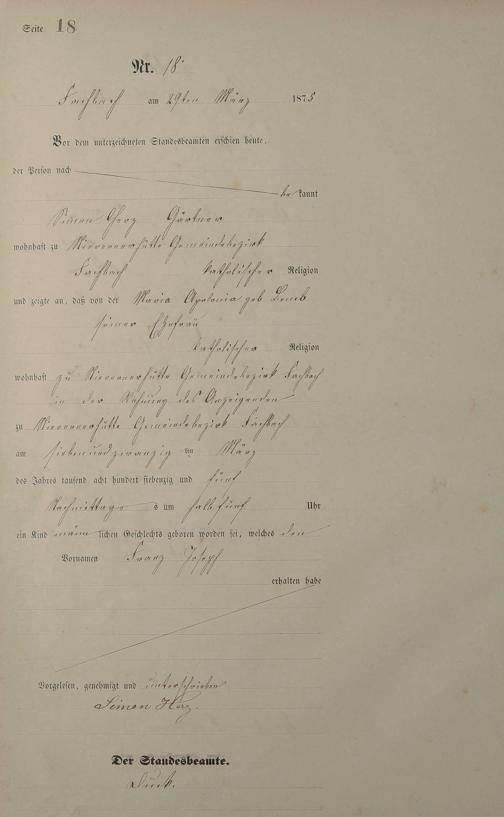 Seite 18
Nr. 18
Fachbach am 29ten März 1875
Vor dem unterzeichneten Standesbeamten erschien heute,
der Person nach
be kannt
Simon Gärtner
wohnhaft zu Nievernerhütte Gemeindebezirk
Fachbach katholischer Religion
und zeigte an, daß von der Maria Apolonia geb.
seiner Ehefrau
katholischer Religion
wohnhaft zu Nievernerhütte Gemeindebezirk Fachbach
in der Wohnung des Anzeigenden
zu Nievernerhütte Gemeindebezirk Fachbach
am siebenundzwanzig ten März
des Jahres tausend acht hundert siebenzig und fünf
Nachmittags s um halb fünf Uhr
ein Kind männ lichen Geschlechts geboren worden sei, welches den
Vornamen Franz Joseph
erhalten habe
Vorgelesen, genehmigt und unterschrieben
Simon
Der Standesbeamte.